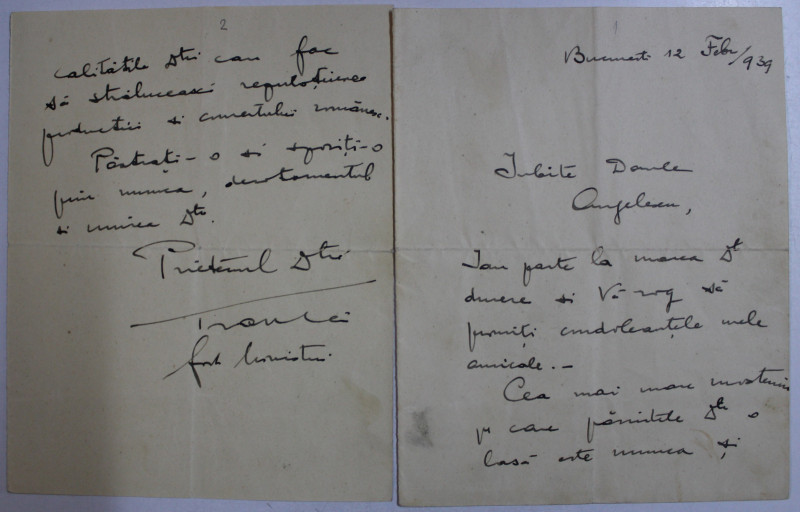 1
Bucuresti 12 Febr/939
Iubite Domle
Angelescu,
Iau parte la marea Dt
durere si Vă rog să
primiți condoleanțele mele
amicale. -
Cea mai mare mostenire
pe care părintele Dtr o
lasă este munca și
2
calitățile Dtri care fac
să strălucească reputațiunea
productiei si comertului românesc.
Păstrați-o si sporiți-o
prin munca, devotamentul
si unirea Dtr.
Prietenul Dtri
fost ministru